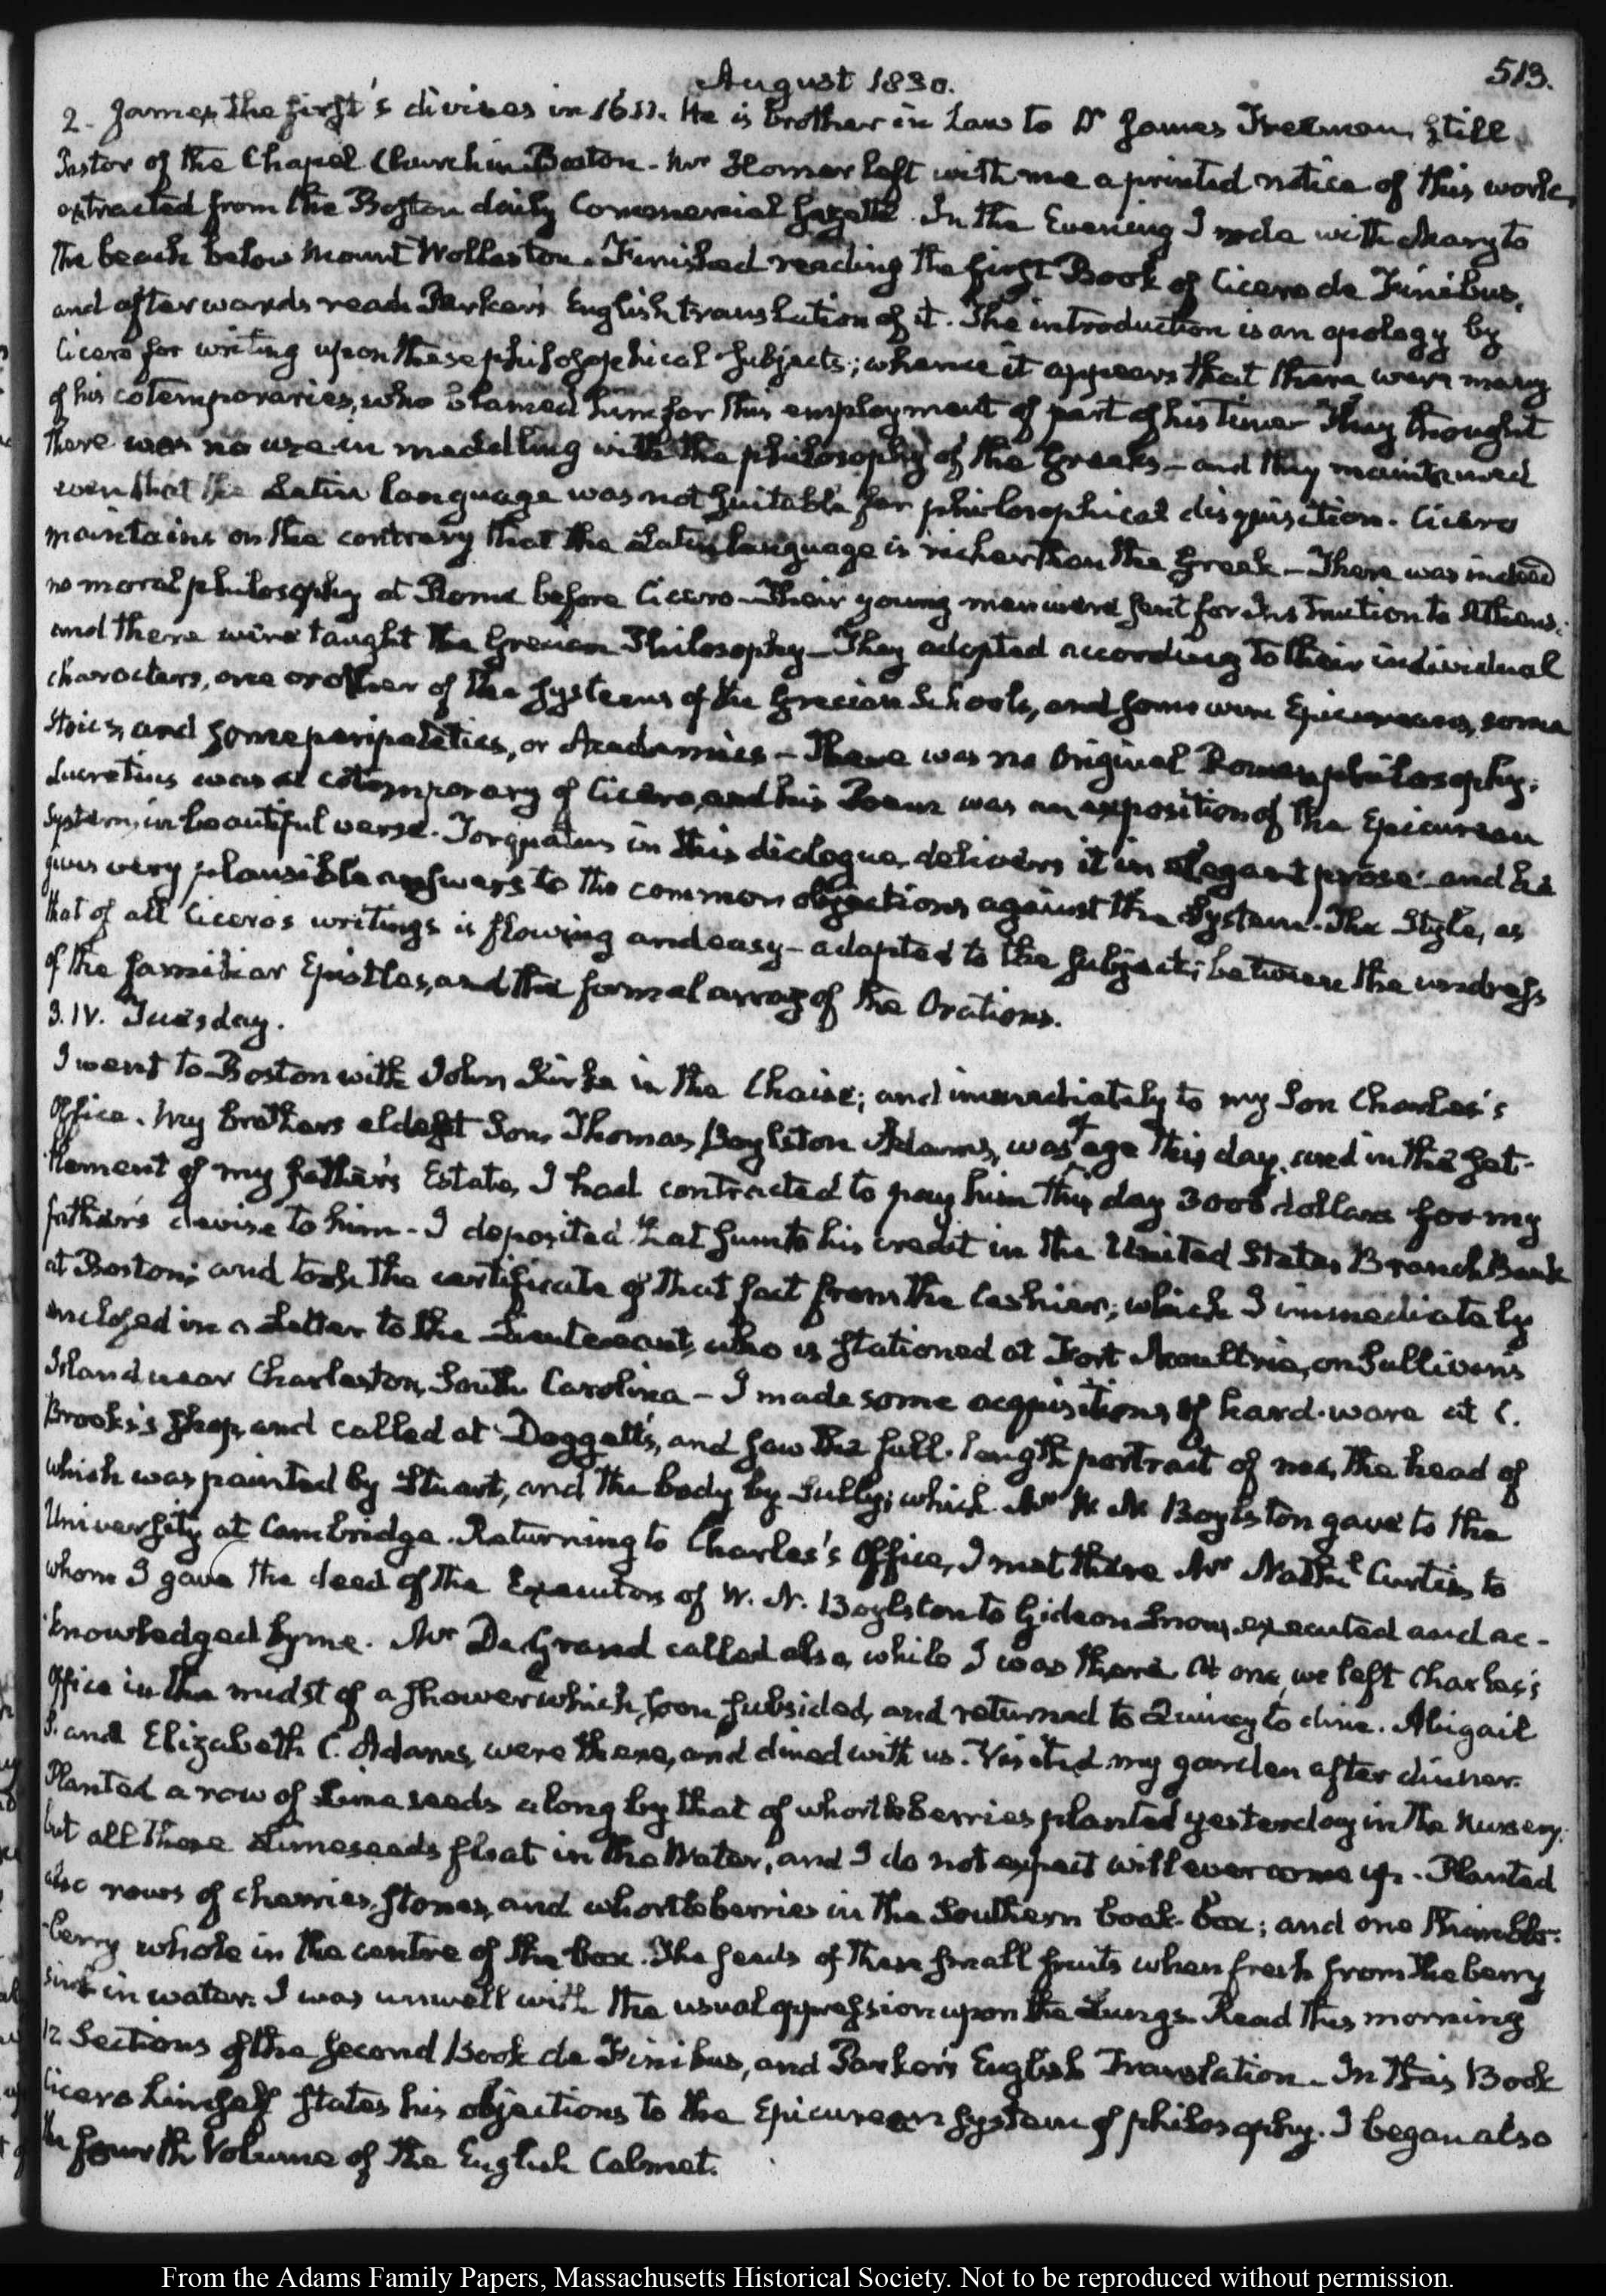 August 1830.
513.
2. James the first's divines in 1611. He is brother in Law to Dr. James Freeman, still
Pastor of the Chapel Church in Boston. Mr Homer left with me a printed notice of this work,
extracted from the Boston daily Commercial Gazette. In the Evening I rode with Mary to
the beach below Mount Wollaston. Finished reading the first Book of Cicero de Finibus,
and afterwards read Parker's English translation of it. The introduction is an apology by
Cicero for writing upon these philosophical subjects; whence it appears that there were many
of his cotemporaries, who blamed him for this employment of part of his time. They thought
there was no use in meddling with the philosophy of the Greeks – and they maintained
even that the Latin language was not suitable for philosophical disquisition. Cicero
maintains on the contrary that the Latin language is richer than the Greek – There was indeed
no moral philosophy at Rome before Cicero – Their young men were sent for Instruction to Athens;
and there were taught the Grecian Philosophy – They adopted according to their individual
characters, one or other of the systems of the Grecian Schools, and some were Epicureans, some
Stoics, and some peripatetics, or Academics – There was no original Roman philosophy;
Lucretius was a cotemporary of Cicero, and his Poem was an exposition of the Epicurean
System, in beautiful verse. Torquatus in this dialogue, delivers it in elegant prose and he
gives very plausible answers to the common objections against the System. The Style, as
that of all Cicero's writings is flowing and easy – adapted to the subject; between the undress
of the familiar Epistles, and the formal array of the Orations.
3. IV. Tuesday.
I went to Boston with John Kirke in the Chaise; and immediately to my Son Charles's
Office. My brother's eldest Son, Thomas Boylston Adams, was of age this day, and in the set-
tlement of my father's Estate, I had contracted to pay him this day 3000 dollars for my
father's devise to him – I deposited that sum to his credit in the United States Branch Bank
at Boston; and took the certificate of that fact from the Cashier; which I immediately
enclosed in a Letter to the Lieutenant, who is stationed at Fort Moultrie, on Sullivan's
Island near Charleston, South Carolina – I made some acquisitions of hard-ware at C.
Brooks's shop, and called at Doggett's, and saw the full-length portrait of me, the head of
which was painted by Stuart, and the body by Sully; which Mr W. N. Boylston gave to the
University at Cambridge. Returning to Charles's Office, I met there Mr Nathl Curtis to
whom I gave the deed of the Executors of W. N. Boylston to Gideon Snow, executed and ac-
knowledged by me. Mr DeGrand called also, while I was there. At one, we left Charles's
Office in the midst of a shower which, soon subsided, and returned to Quincy to dine. Abigail
S. and Elizabeth C. Adams, were there, and dined with us. Visited my garden after dinner.
Planted a row of Lime seeds along by that of whortleberries planted yesterday in the Nursery;
but all these Limeseeds float in the Water, and I do not expect will ever come up. Planted
also rows of cherries, stones, and whortleberries in the Southern book-box; and one thimble-
berry whole in the centre of the box. The seeds of these small fruits when fresh from the berry
sink in water. I was unwell with the usual oppression upon the Lungs. Read this morning
12 Sections of the second Book de Finibus, and Parker's English Translation. In this Book
Cicero himself states his objections to the Epicurean system of philosophy. I began also
the fourth Volume of the English Calmet.
From the Adams Family Papers, Massachusetts Historical Society. Not to be reproduced without permission.